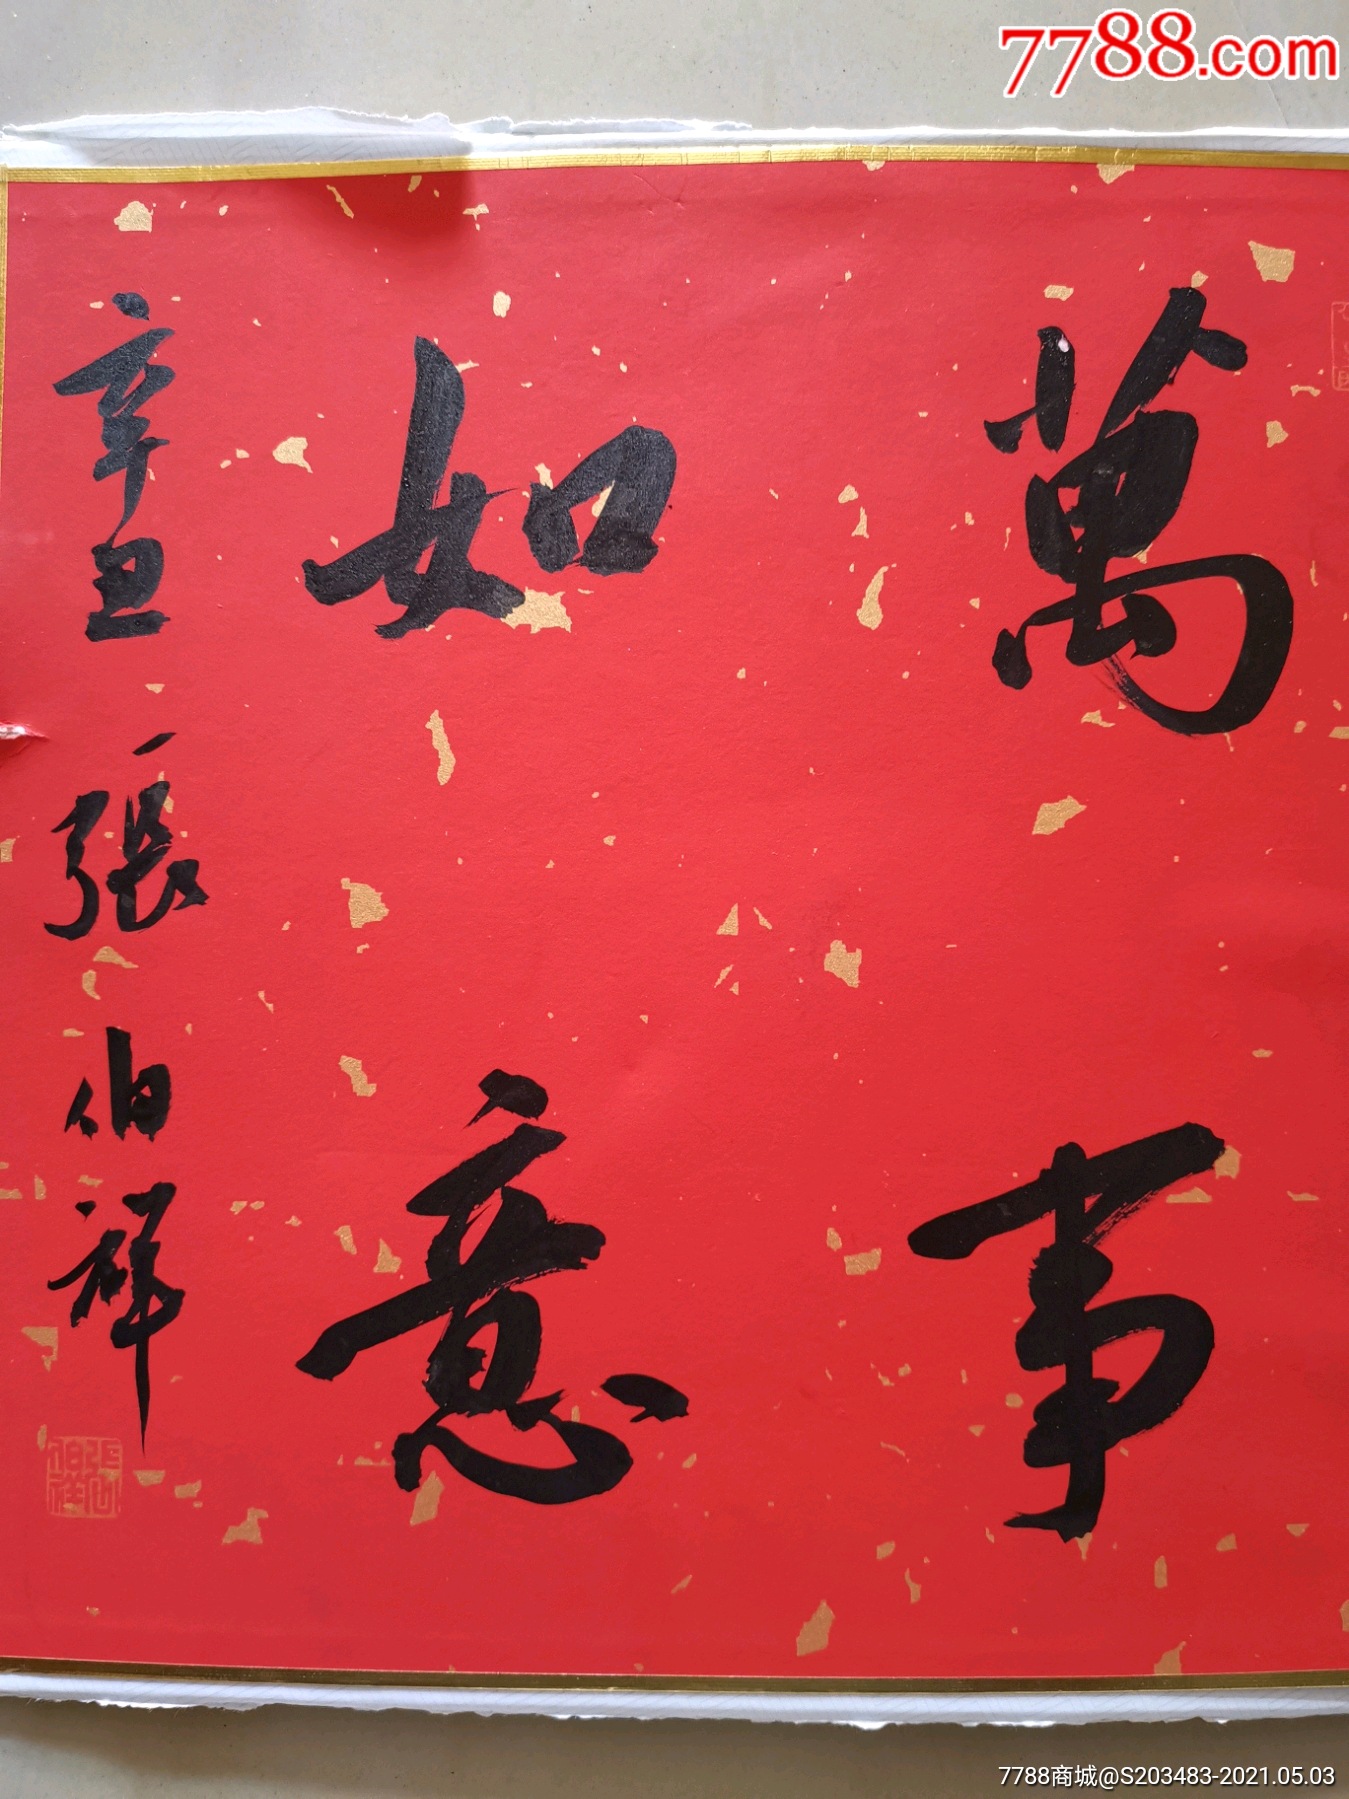 7788.com
萬事
如意
辛丑張伯祥
張伯祥
7788商城@S203483-2021.05.03